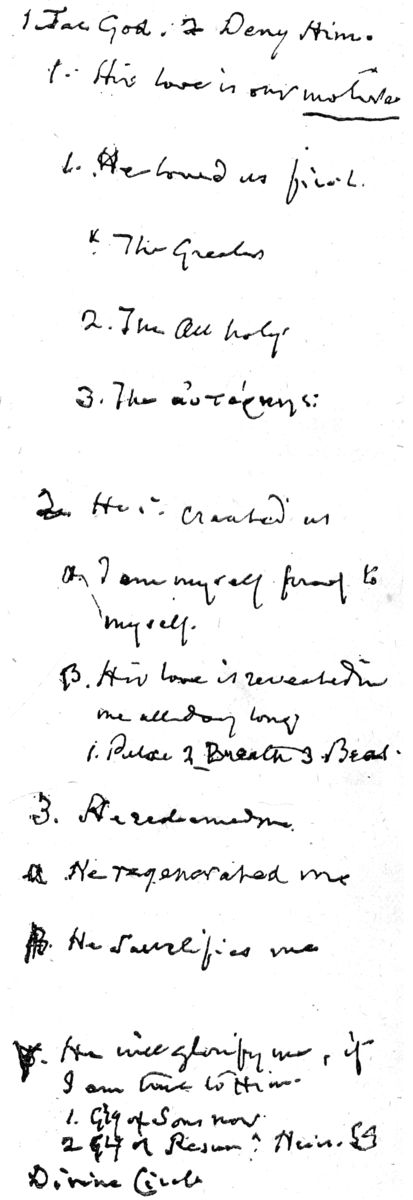 1 For God. 2 Deny Him.
1. His love is our motive
1. He loved us first.
The Greatness
2. The All holy.
3. The αὐτάρκης:
2. He created us
α. I am myself proof to
myself.
β. His love is revealed in
me all day long
1. Pulse 2 Breath 3. Beat.
3. He redeemed me.
α He regenerated me
β. He sanctifies me
γ. He will glorify me, if
I am true to Him.
1. Gly of Sons now.
2 Gly of Resurn: Heirs.
Divine Circle